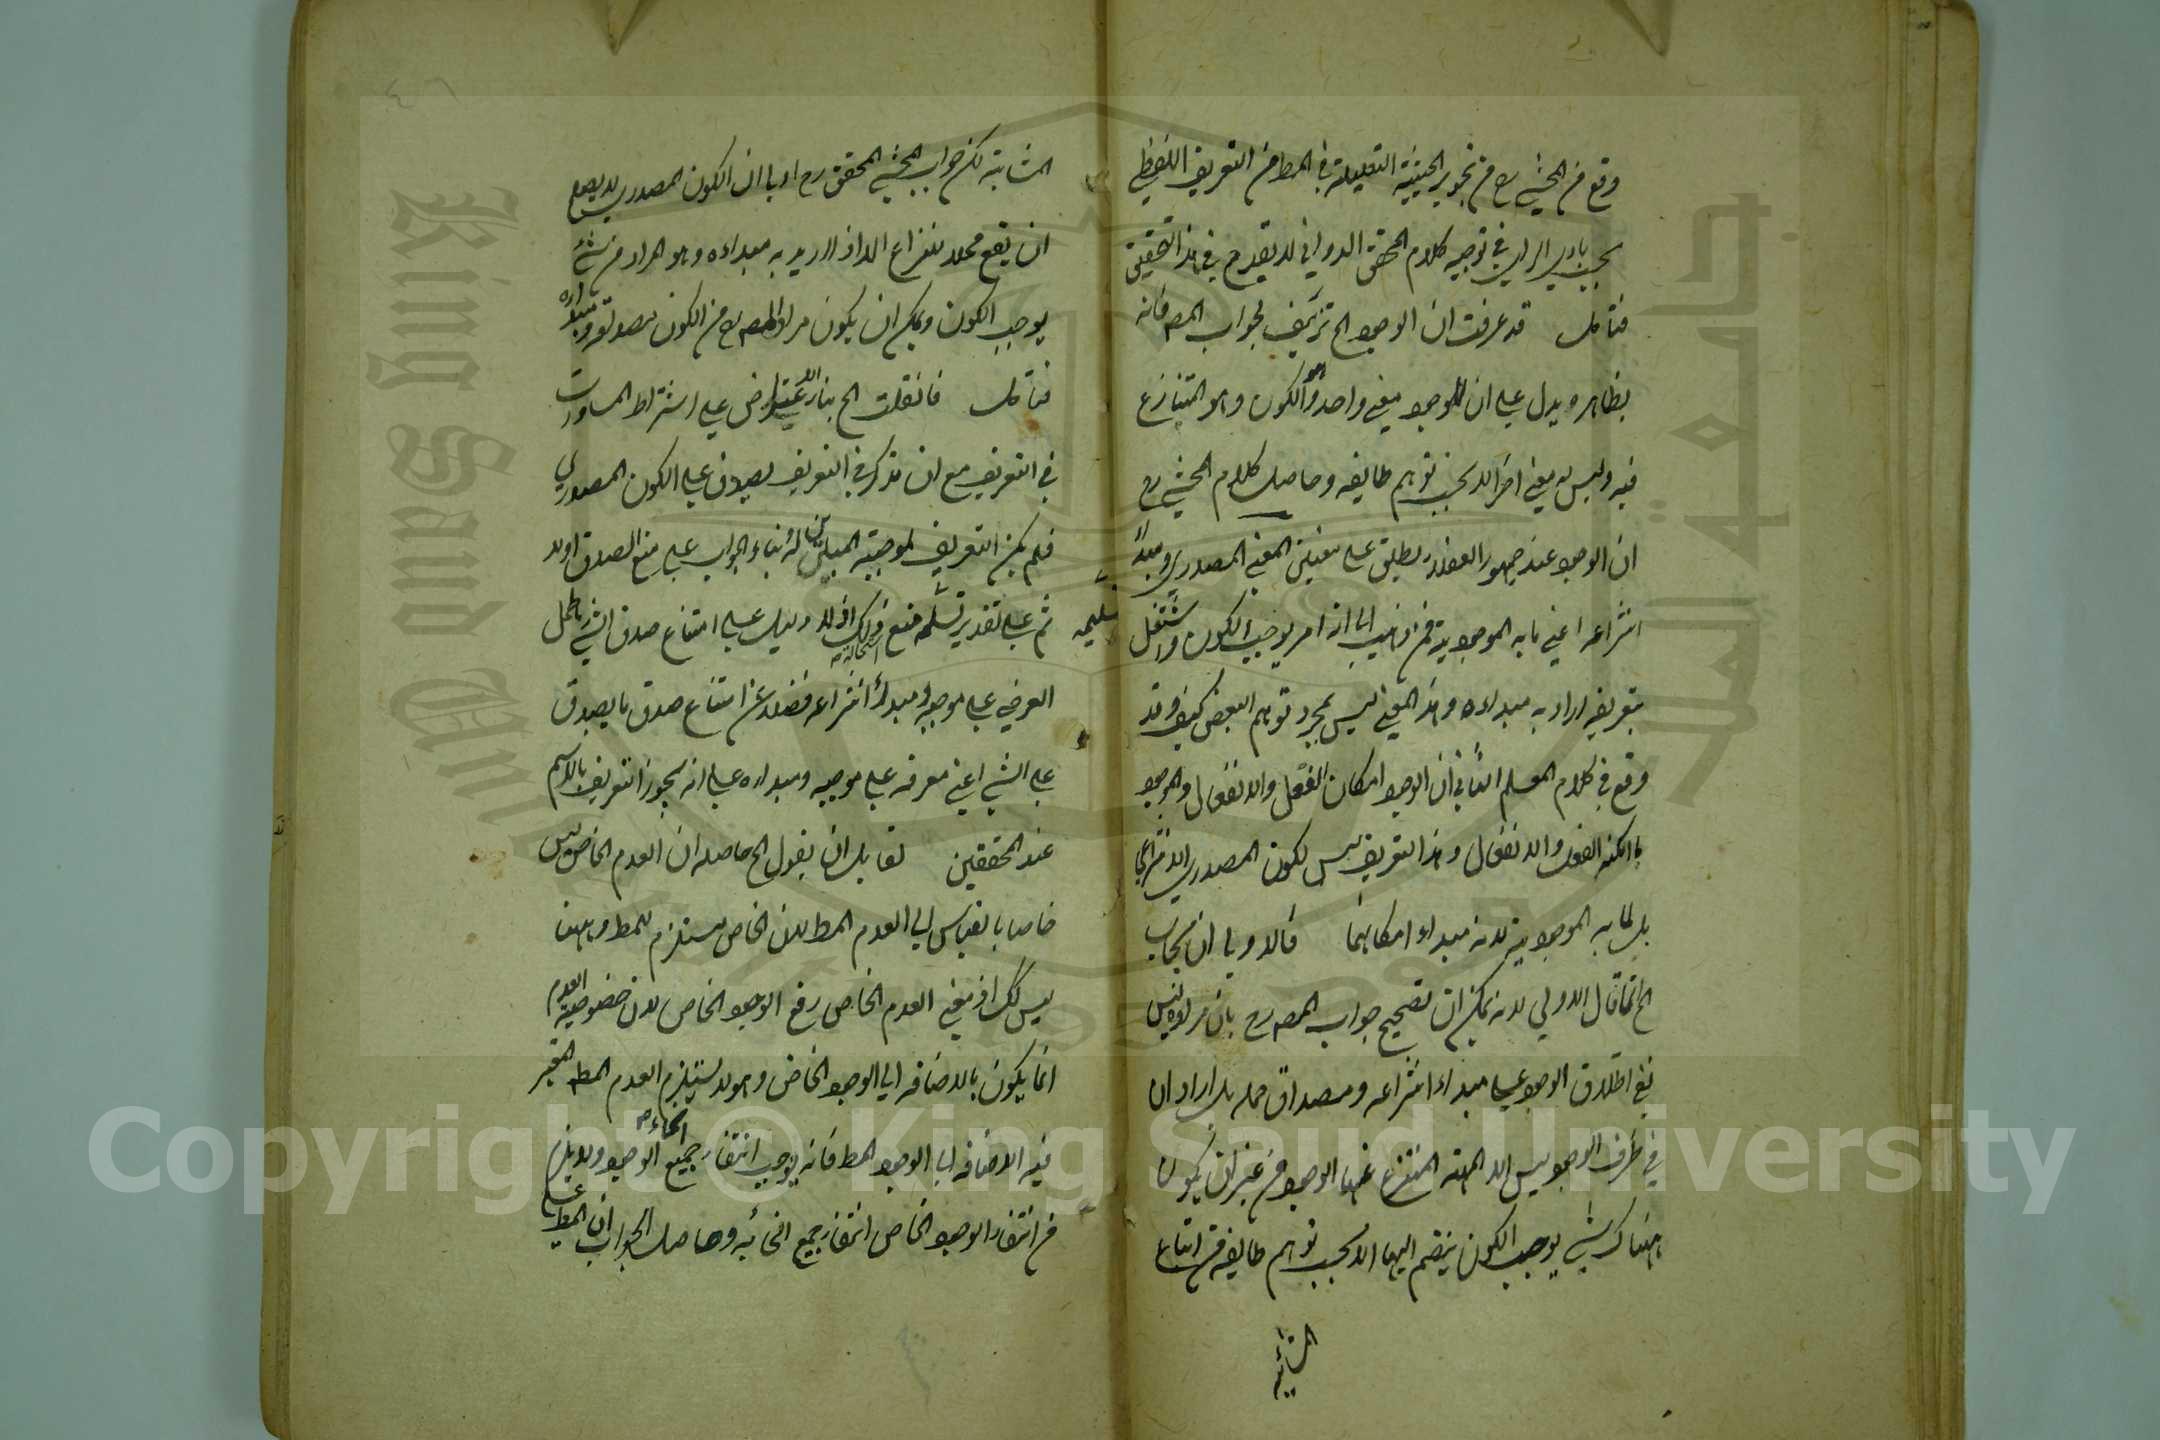 وقع من المحشي رح من تجويز الحيثية التعليلية في المط من التعريف اللفظي
بحسب بادي الراي في توجيه كلام المحقق الدواني لا يقدح في هذا التحقيق
فتامل قد عرفت ان الوجود الخ تزييف لجواب المص فانه
بظاهره يدل على ان للوجود معنى واحد وهو الكون وهو المتنازع
فيه وليس له معنى اخر الا بحسب توهم طايفه وحاصل كلام المحشي رح
ان الوجود عند جمهور العقلاء يطلق على معنيين المعنى المصدري ومبدأ
انتزاعه اعني ما به الموجودية فمن ذهب الى انه امر يوجب الكون واشتغل
بتعريفه اراد به مبداءه وهذا المعنى ليس بمجرد توهم البعض كيف وقد
وقع في كلام المعلم الثاني ان الوجود امكان الفعل والانفعال والموجود
ما امكنه الفعل والانفعال وهذا التعريف ليس لكون المصدري الانتزاعي
بل لما به الموجودية لانه مبداء امكانهما فالاولى ان يجاب
الخ انما قال الاولى لانه يمكن ان تصحيح جواب المص رح بان مراده ليس
نفي اطلاق الوجود على مبداء انتزاعه ومصداق حمله بل اراد ان
في ظرف الوجود ليس الا المهية المنتزع عنها الوجود من غير ان يكون
هناك شي يوجب الكون ينضم اليها الا بحسب توهم طايفة من اتباع
المشائية
المشائية لكن جواب المحشي المحقق رح اولى اذ الكون المصدري لا يصلح
ان يقع محلا للنزاع الا اذا اريد به مبداءه وهو المراد من شئ
يوجب الكون ويمكن ان يكون مراد المص رح من الكون مصداقه ومبداءه
فتامل فان قلت الخ بناء الاعتراض على اشتراط المساوات
في التعريف مع ان ما ذكر في التعريف يصدق على الكون المصدري
فلم يكن التعريف لموجبه المباين له وبناء الجواب على منع الصدق اولا
ثم على تقدير تسليمه منع استحالة ذلك اذ لا دليل على امتناع صدق الشي بالحمل
تسليمه
العرضي على موجبه ومبداء انتزاعه فضلا عن امتناع صدق ما يصدق
على الشي اعني معرفه على موجبه ومبداءه على انه يجوز التعريف بالاسم
عند المحققين لقايل ان يقول الخ حاصله ان العدم الخاص ليس
خاصا بالقياس الى العدم المط لان الخاص يستلزم للمط وههنا
ليس كك اذ معنى العدم الخاص رفع الوجود الخاص لان خصوصية العدم
انما يكون بالاضافه الى الوجود الخاص وهو لا يستلزم العدم المط المعتبر
فيه الاضافه الى الوجود المط فانه يوجب انتفاء جميع انحاء الوجود ولا يلزم
من انتفاء الوجود الخاص انتفاء جميع انحائه وحاصل الجواب ان المط على